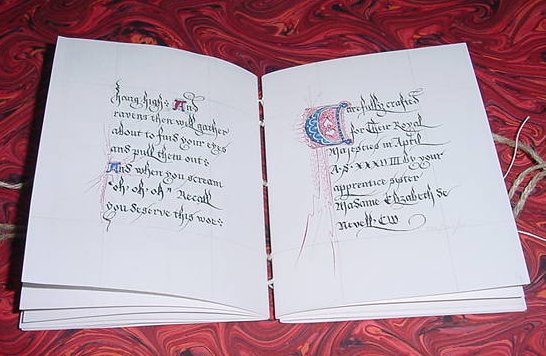 hang high: And
ravens then will gather
about to find your eyes
and pull them out:
And when you scream
"oh, oh, oh" Recall
you deserve this woe:
Carefully crafted
for Their Royal
Majesties in April
A.S. XXXVIII by your
apprentice sister
Madame Elizabeth de
Nevell, CW